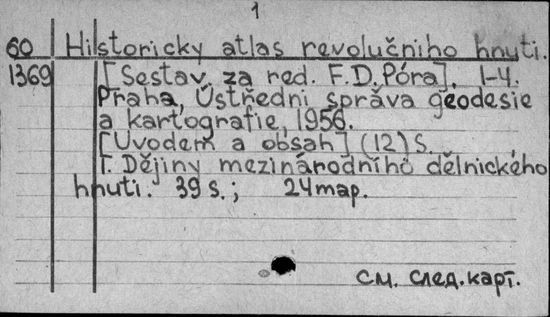 1
60 Hilstoricky atlas revolučniho hnuti.
1369 [Sestav. za red. F.D. Póra]. 1-4.
Praha, Ústředni správa geodesie
a kartografie, 1956.
[Úvodem a obsah] (12) s.
I. Dějiny mezinárodního dělnického
hnuti. 39 s.; 24 map.
См. след. карт.